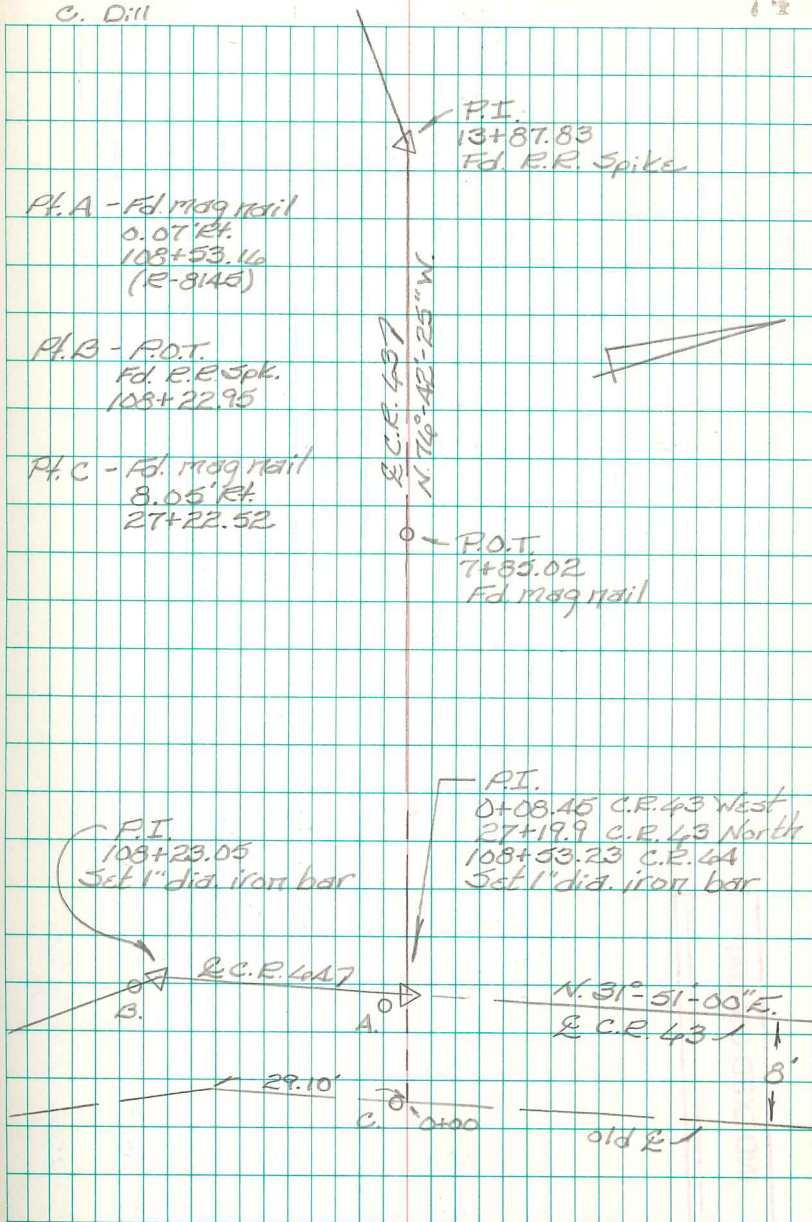 C. Dill
P.I.
13+87.83
Fd. R.R. Spike
Pt. A - Fd. mag nail
0.07' Rt.
108+53.16
(R-8145)
℄ C.R. 43
N. 76°-42'-25" W.
Pt. B - P.O.T.
Fd. R.R. Spk.
108+22.95
Pt. C - Fd. mag nail
8.05' Rt.
27+22.52
P.O.T.
7+85.02
Fd mag nail
P.I.
0+08.45 C.R. 43 West
27+19.9 C.R. 43 North
108+53.23 C.R. 44
Set 1" dia. iron bar
P.I.
108+23.05
Set 1" dia. iron bar
℄ C.R. 44
N. 31°-51'-00" E.
℄ C.R. 43
B.
A.
8'
29.10'
C.
0+00
old ℄